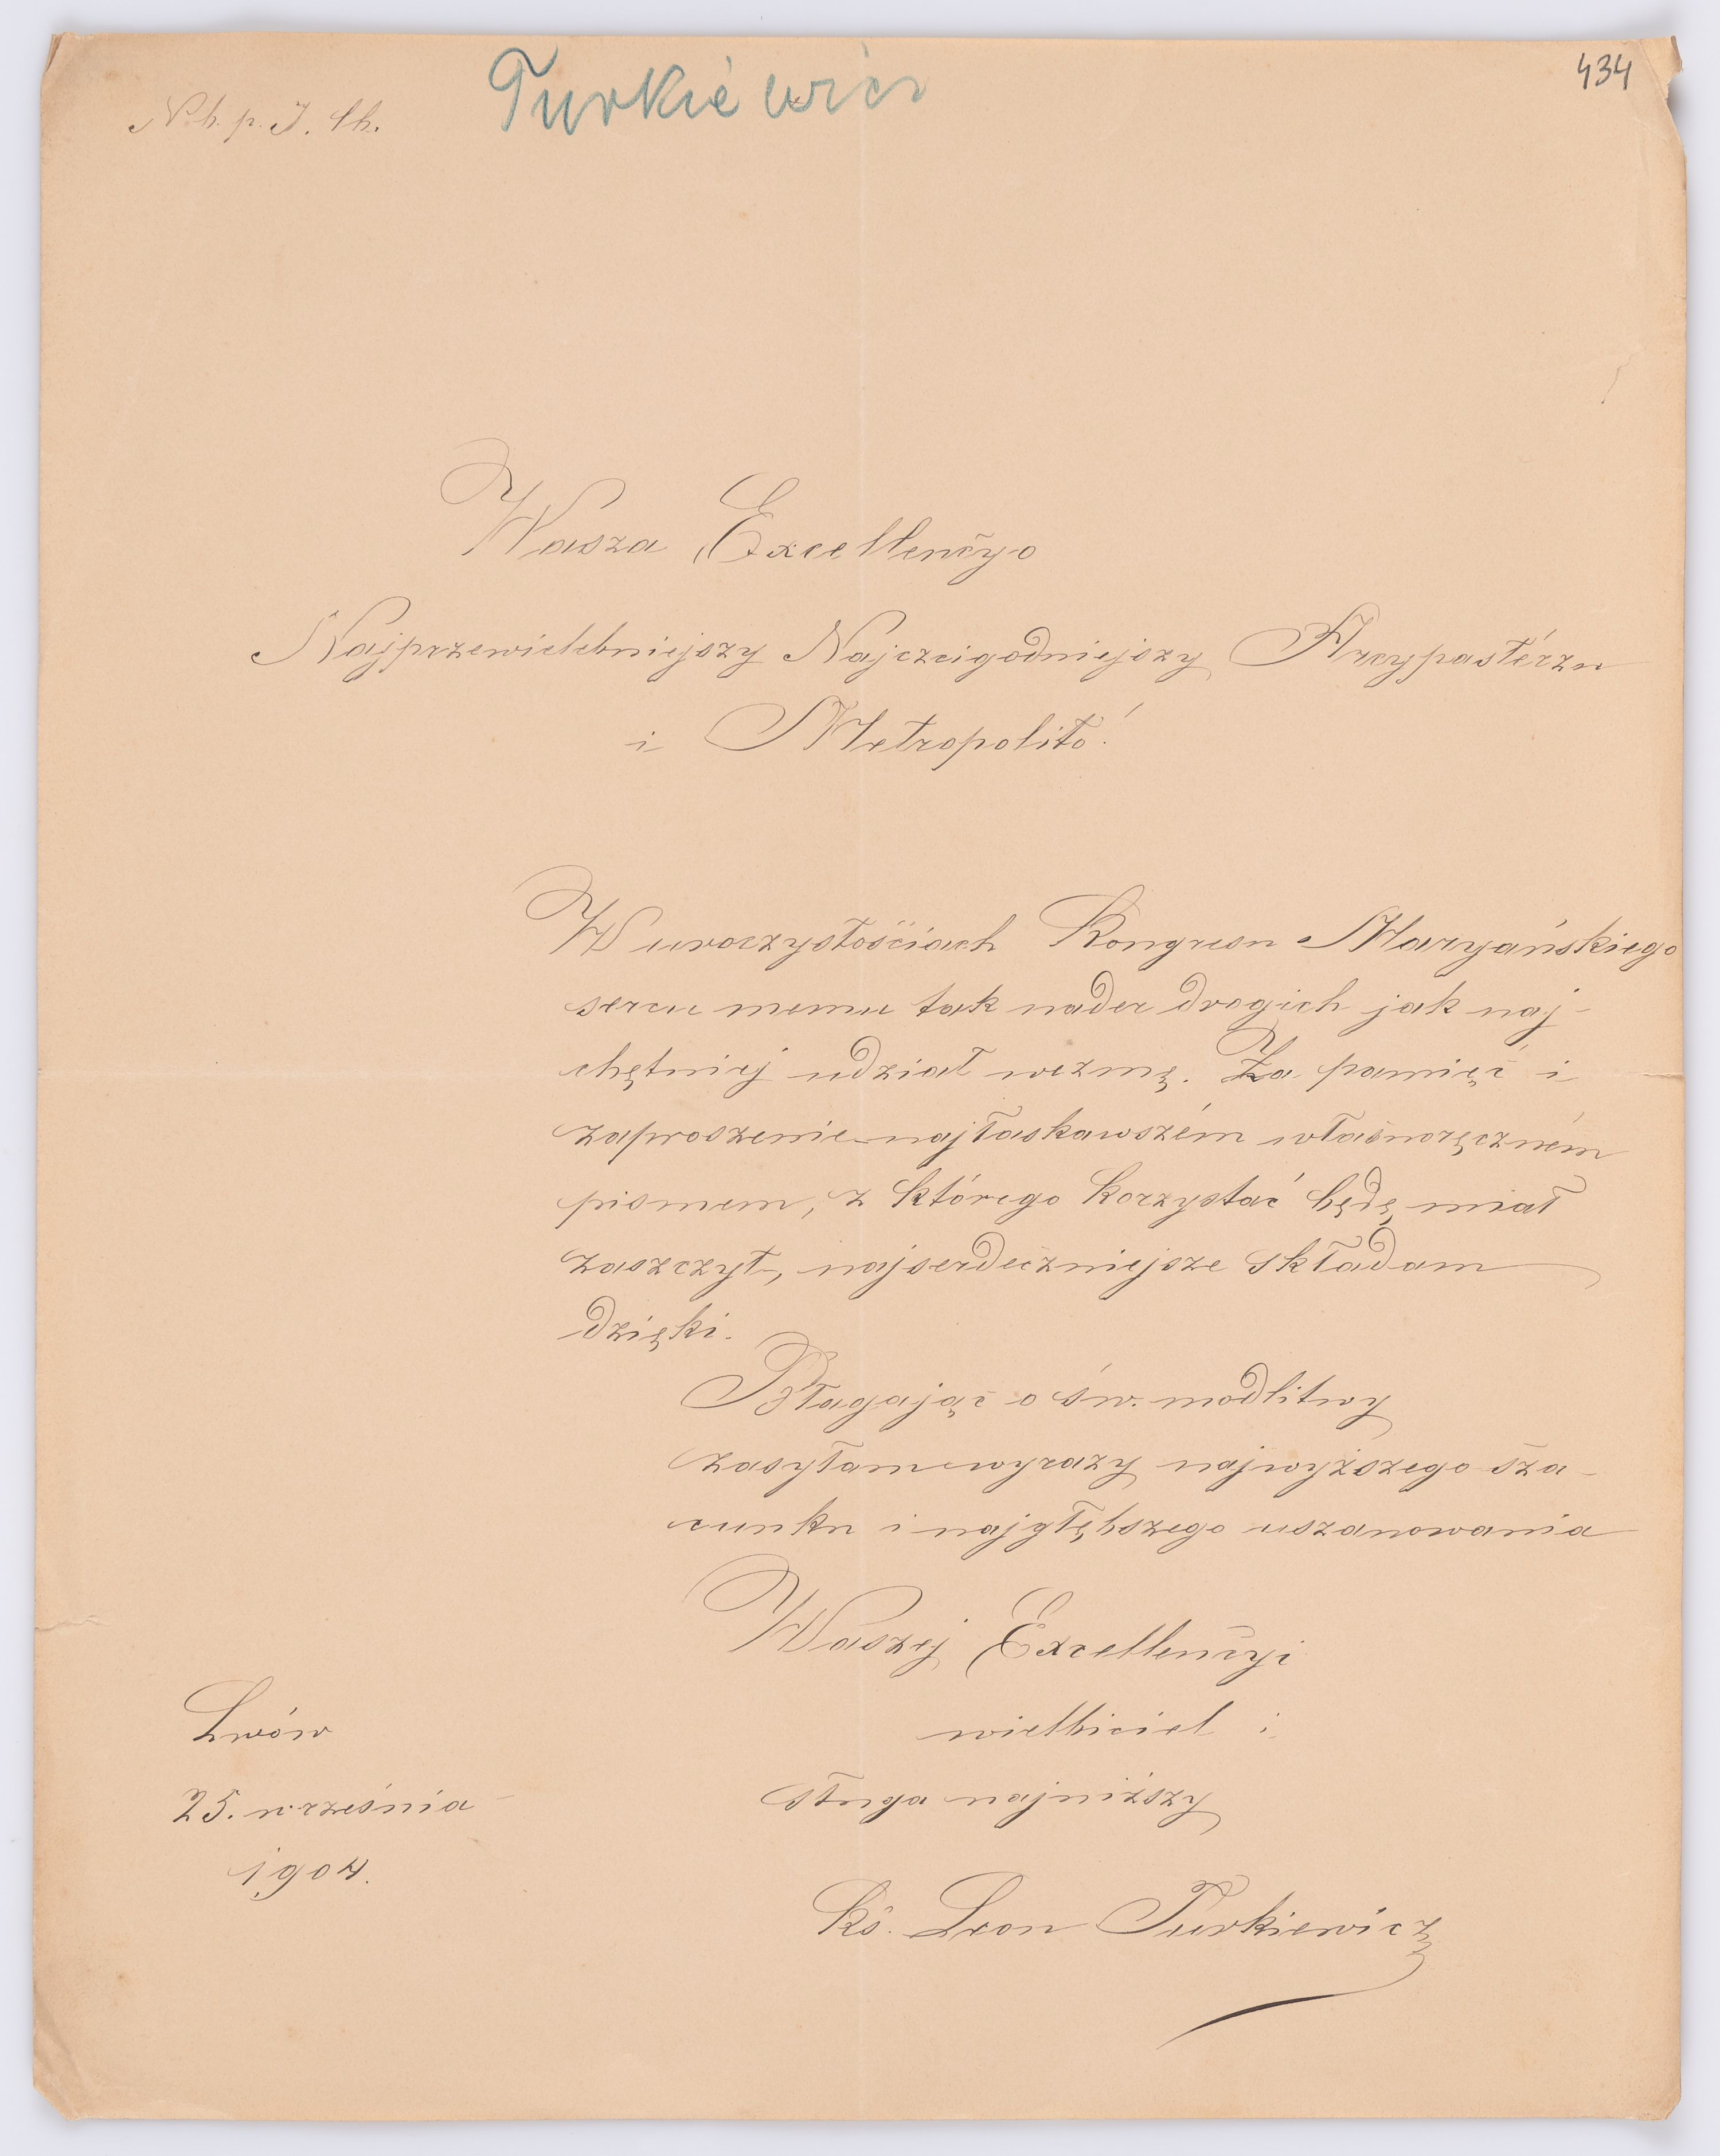 434
Turkiewicz
N. b. p. J. Ch.
Wasza Excellencyo
Najprzewielebniejszy Najczcigodniejszy Arcypastérzu
i Metropolito!
W uroczystościach Kongresu Maryańskiego
sercu memu tak nader drogich jak naj-
chętniej udział wezmę. Za pamięć i
zaproszenie najłaskawszém własnoręczném
pismem, z którego korzystać będę miał
zaszczyt, najserdeczniejsze składam
dzięki.
Błagając o św. modlitwy
zasyłam wyrazy najwyższego sza-
cunku i najgłębszego uszanowania
Waszej Excellencyi
wielbiciel i
sługa najniższy
Lwów
25. września
1904.
Ks. Leon Turkiewicz